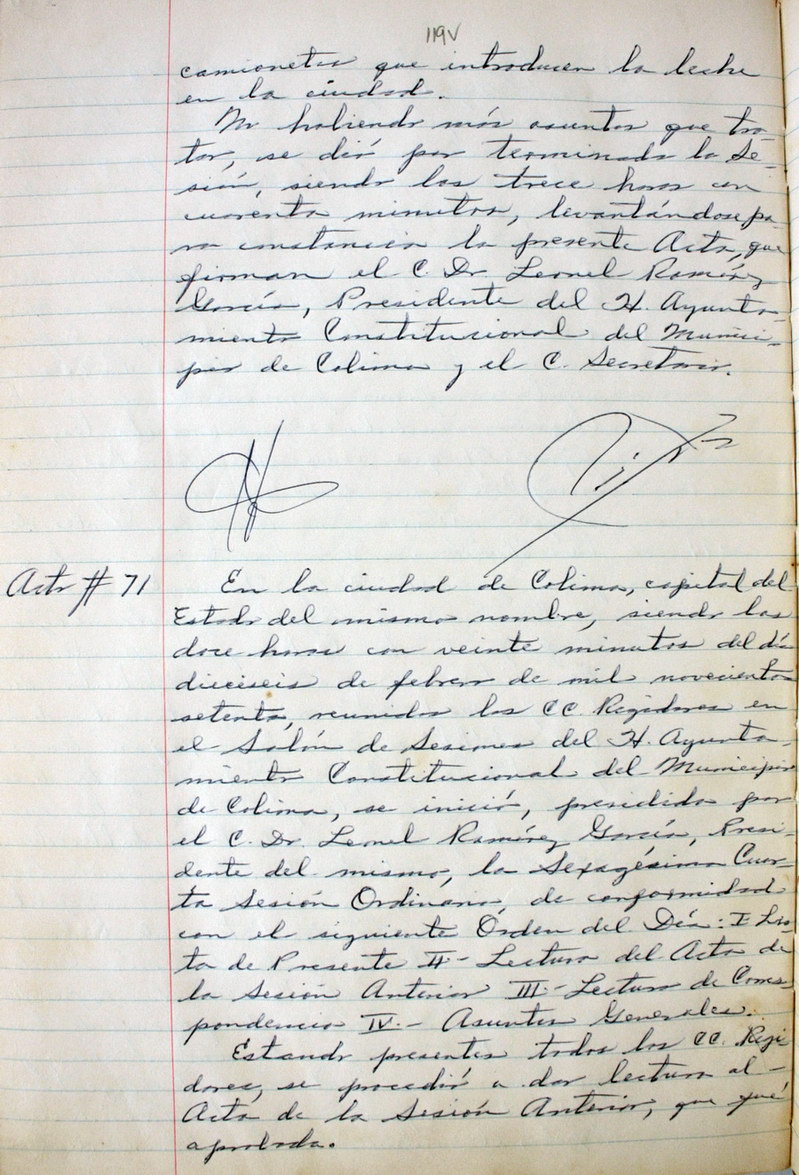 119V
camionetas que introducen la leche
en la ciudad.
No habiendo más asuntos que tra-
tar, se dió por terminada la Se-
sión, siendo las trece horas con
cuarenta minutos, levantándose pa-
ra constancia la presente Acta, que
firman el C. Dr. Leonel Ramírez
García, Presidente del H. Ayunta-
miento Constitucional del Munici-
pio de Colima y el C. Secretario.
Acta # 71
En la ciudad de Colima, capital del
Estado del mismo nombre, siendo las
doce horas con veinte minutos del día
dieciseis de febrero de mil novecientos
setenta, reunidos los CC. Regidores en
el Salón de Sesiones del H. Ayunta-
miento Constitucional del Municipio
de Colima, se inició, presidida por
el C. Dr. Leonel Ramírez García, Presi-
dente del mismo, la Sexagésima Cuar-
ta Sesión Ordinaria, de conformidad
con el siguiente Órden del Día: I Lis-
ta de Presente II- Lectura del Acta de
la Sesión Anterior III.- Lectura de Corres-
pondencia IV.- Asuntos Generales.
Estando presentes todos los CC. Regi-
dores, se procedió a dar lectura al -
Acta de la Sesión Anterior, que fué
aprobada.